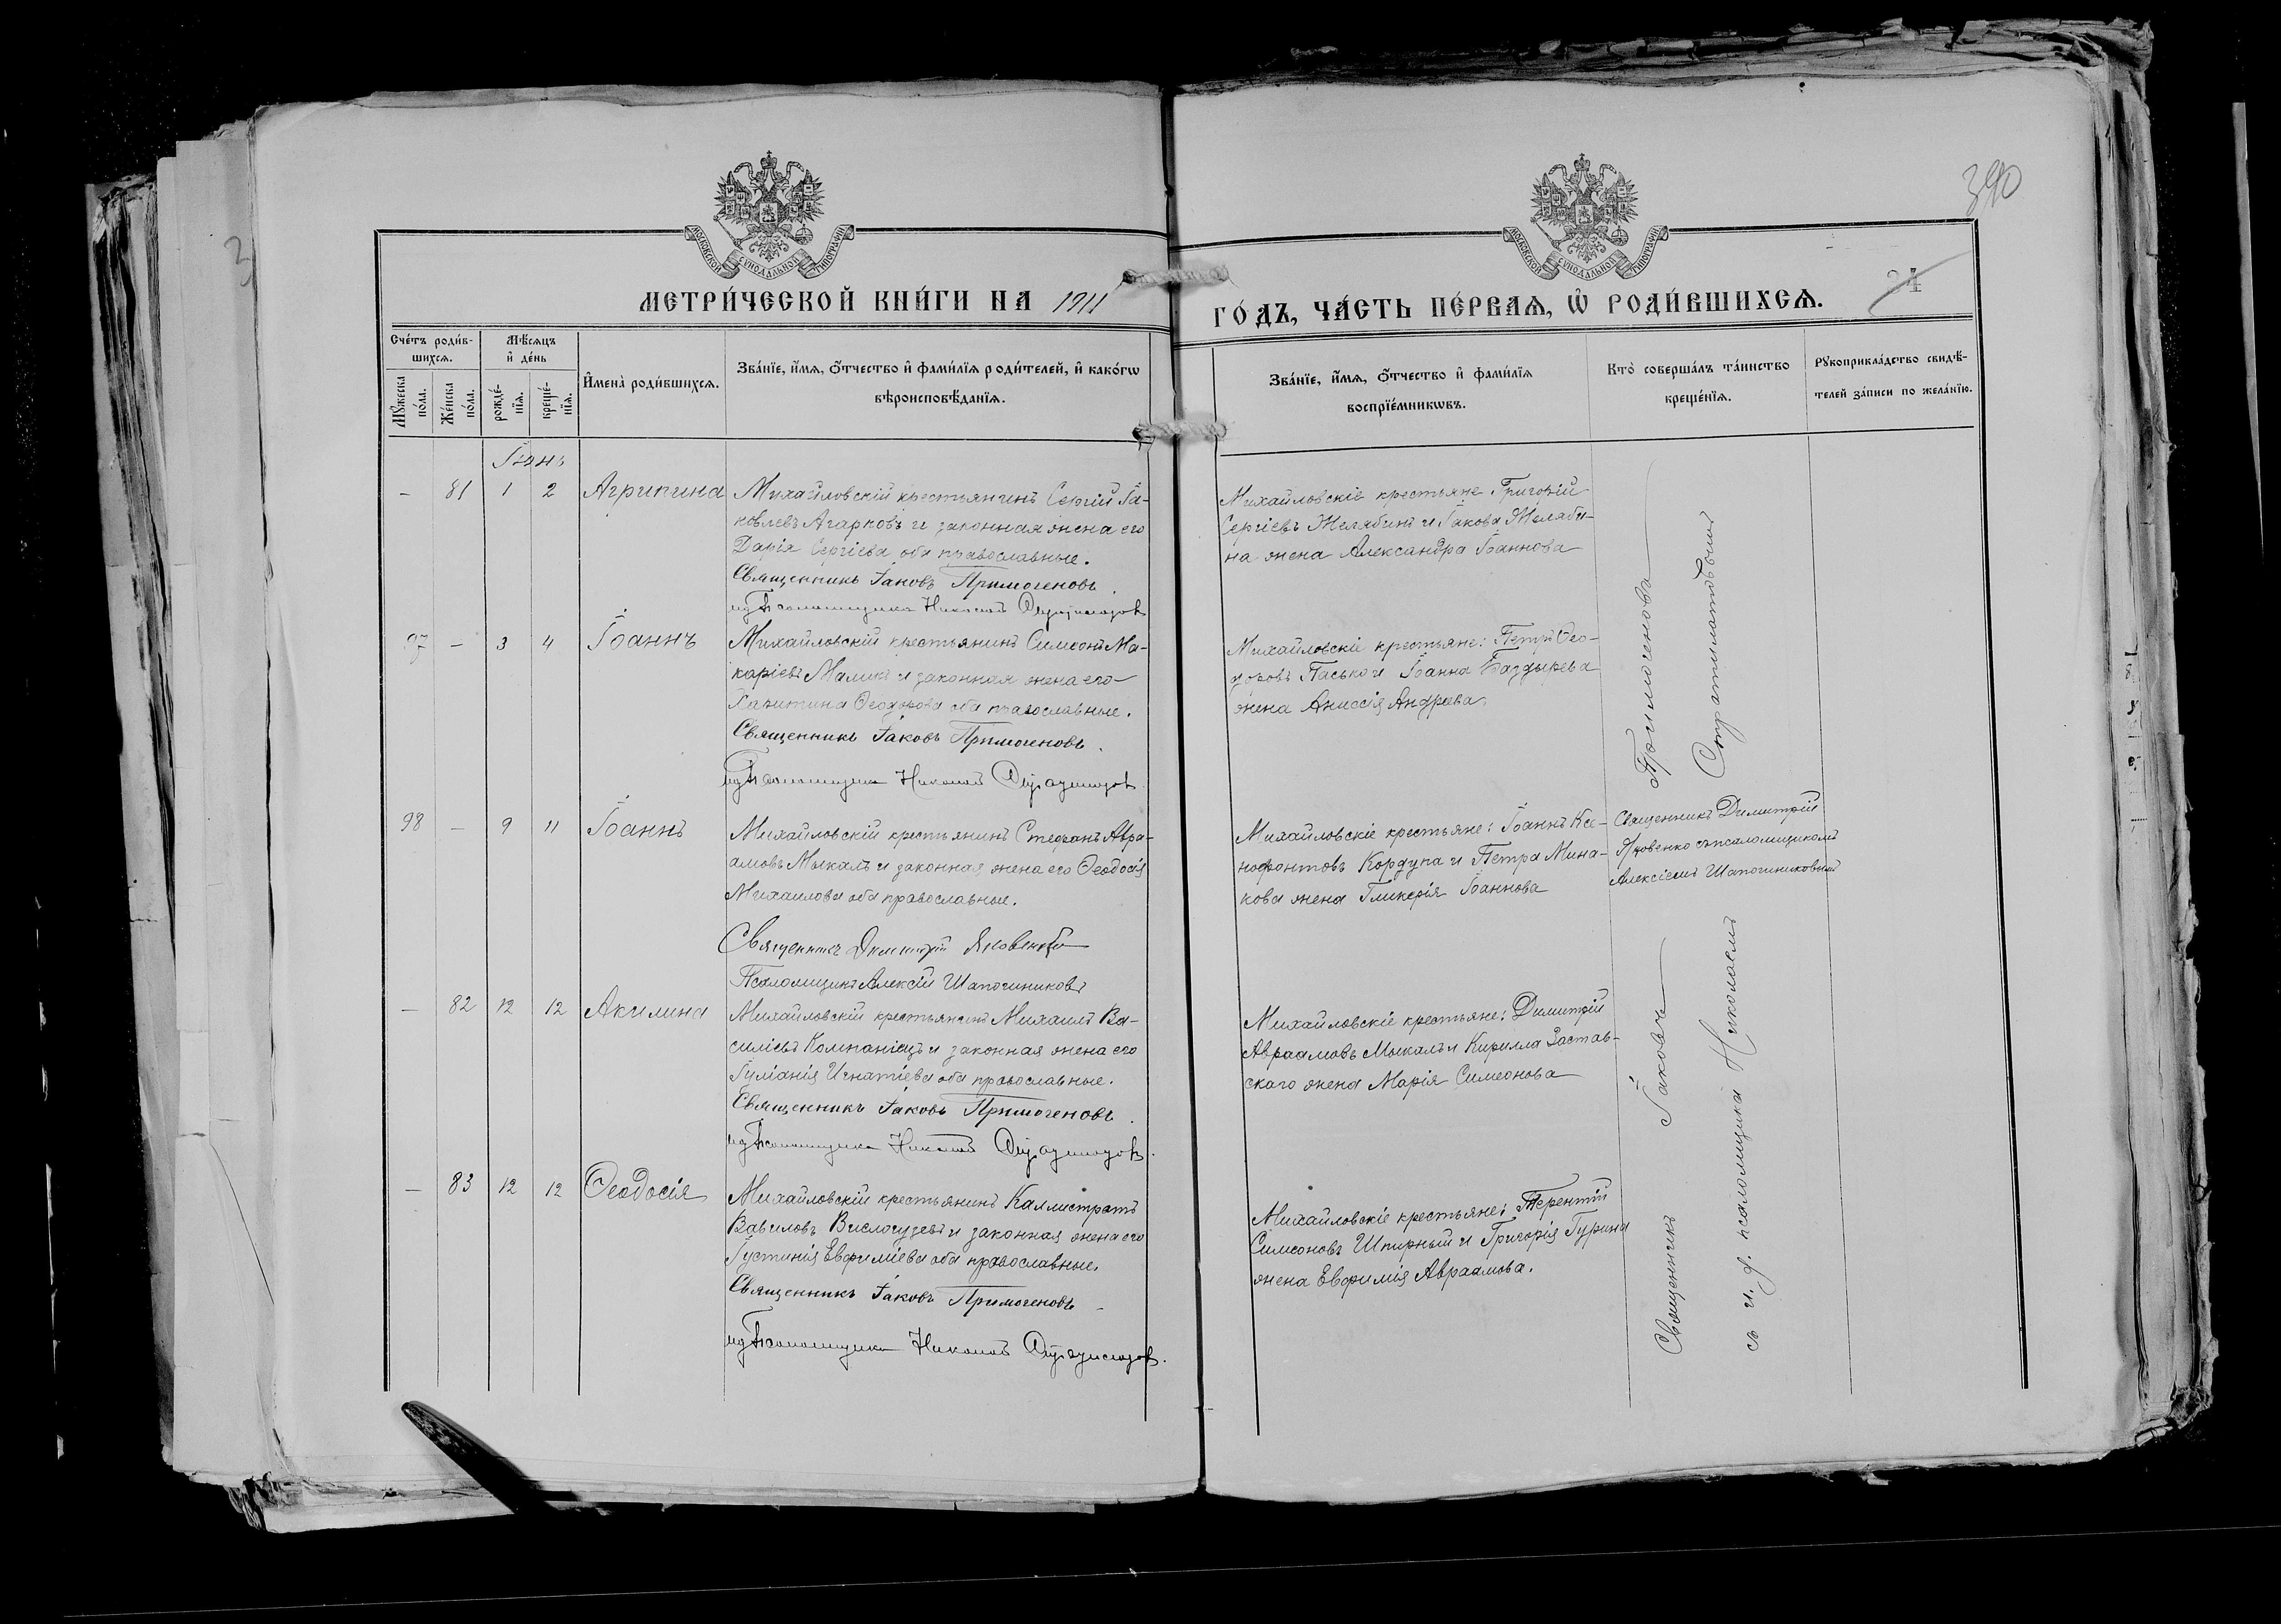 390
МОСКОВСКОЙ СУНОДАЛЬНОЙ ТИПОГРАФІИ
МОСКОВСКОЙ СУНОДАЛЬНОЙ ТИПОГРАФІИ
МЕТРИ́ЧЕСКОЙ КНИ́ГИ НА 1911
ГО́ДЪ, ЧА́СТЬ ПЕ́РВАѦ, Ѡ҆ РОДИ́ВШИХСѦ.
Сче́тъ роди́в-
шихсѧ.
Мѣ́сѧцъ
и҆ де́нь
Мꙋ́жеска
по́ла.
Же́нска
по́ла.
рожде́-
нїѧ.
креще́-
нїѧ.
И҆мена̀ роди́вшихсѧ.
Зва́нїе, и҆́мѧ, о҆́тчество и҆ фами́лїѧ роди́телей, и҆ како́гѡ
вѣроисповѣ́данїѧ.
Зва́нїе, и҆́мѧ, о҆́тчество и҆ фами́лїѧ
воспрїе́мникѡвъ.
Кто̀ соверша́лъ та́инство
креще́нїѧ.
Рꙋкоприкла́дство свидѣ́-
телей за́писи по жела́нїю.
Іюнь
- 81 1 2 Агрипина
Михайловскій крестьянинъ Сергій Іа-
ковлевъ Агарковъ и законная жена его
Дарія Сергіева оба православные.
Священникъ Іаковъ Примогеновъ.
ид Псаломщика Николай
Михайловскіе крестьяне Григорій
Сергіевъ Желябинъ и Іакова Желяби-
на жена Александра Іоаннова
97 - 3 4 Іоаннъ
Михайловскій крестьянинъ Симеонъ Ма-
каріевъ Маликъ и законная жена его
Харитина Ѳеодорова оба православные.
Священникъ Іаковъ Примогеновъ.
ид Псаломщика Николай
Михайловскіе крестьяне: Петръ Ѳео-
доровъ Пасько и Іоанна Баздырева
жена Анисія Андреева
98 - 9 11 Іоаннъ
Михайловскій крестьянинъ Стефанъ Авра-
амовъ Мыкалъ и законная жена его Ѳеодосія
Михаилова оба православные.
Священникъ Димитрій Яковенко
Псаломщикъ Алексій Шапошниковъ
Михайловскіе крестьяне: Іоаннъ Ксе-
нофонтовъ Кордупа и Петра Мина-
кова жена Гликерія Іоаннова
Священникъ Димитрій
Яковенко съ псаломщикомъ
Алексіемъ Шапошниковымъ
- 82 12 12 Акилина
Михайловскій крестьянинъ Михаилъ Ва-
силіевъ Компаніецъ и законная жена его
Іуліанія Игнатіева оба православные.
Священникъ Іаковъ Примогеновъ.
ид Псаломщика Николай
Михайловскіе крестьяне: Димитрій
Авраамовъ Мыкалъ и Кирилла Застав-
скаго жена Марія Симеонова
- 83 12 12 Ѳеодосія
Михайловскій крестьянинъ Каллистратъ
Вавиловъ Вислогузовъ и законная жена его
Іустинія Евфиміева оба православные.
Священникъ Іаковъ Примогеновъ
ид Псаломщика Николай
Михайловскіе крестьяне: Терентій
Симеоновъ Шпирный и Григорія Гурина
жена Евфимія Авраамова.
Священникъ Іаковъ Примогеновъ
съ и. д. псаломщика Николаемъ